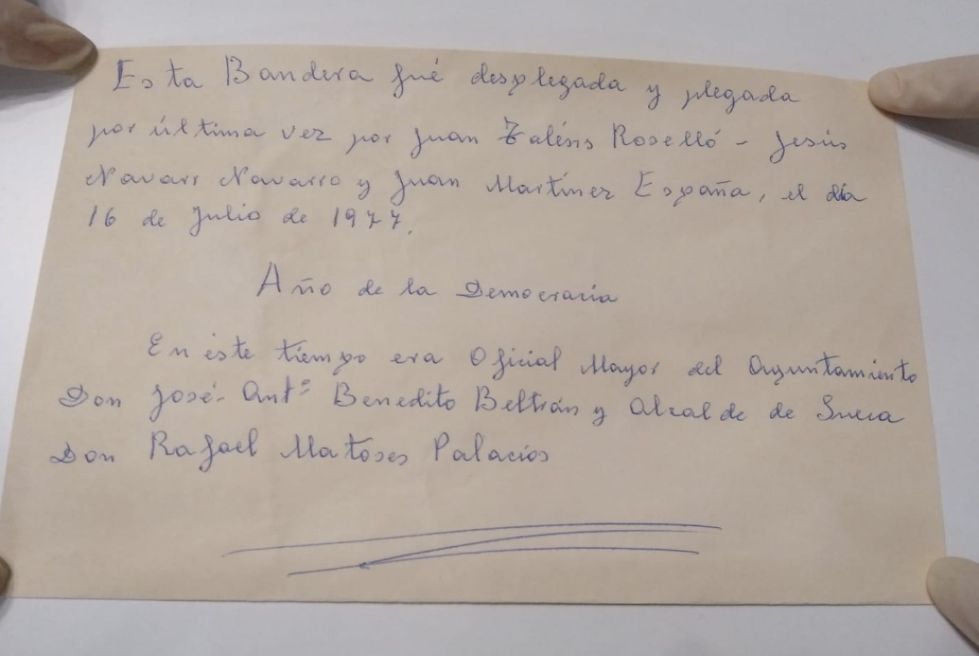 Esta Bandera fué desplegada y plegada
por última vez por Juan Taléns Roselló - Jesús
Navarr Navarro y Juan Martínez España, el día
16 de Julio de 1977.
Año de la Democracia
En éste tiempo era Oficial Mayor del Ayuntamiento
Don José-Antº Benedito Beltrán y Alcalde de Sueca
Don Rafael Matoses Palacios